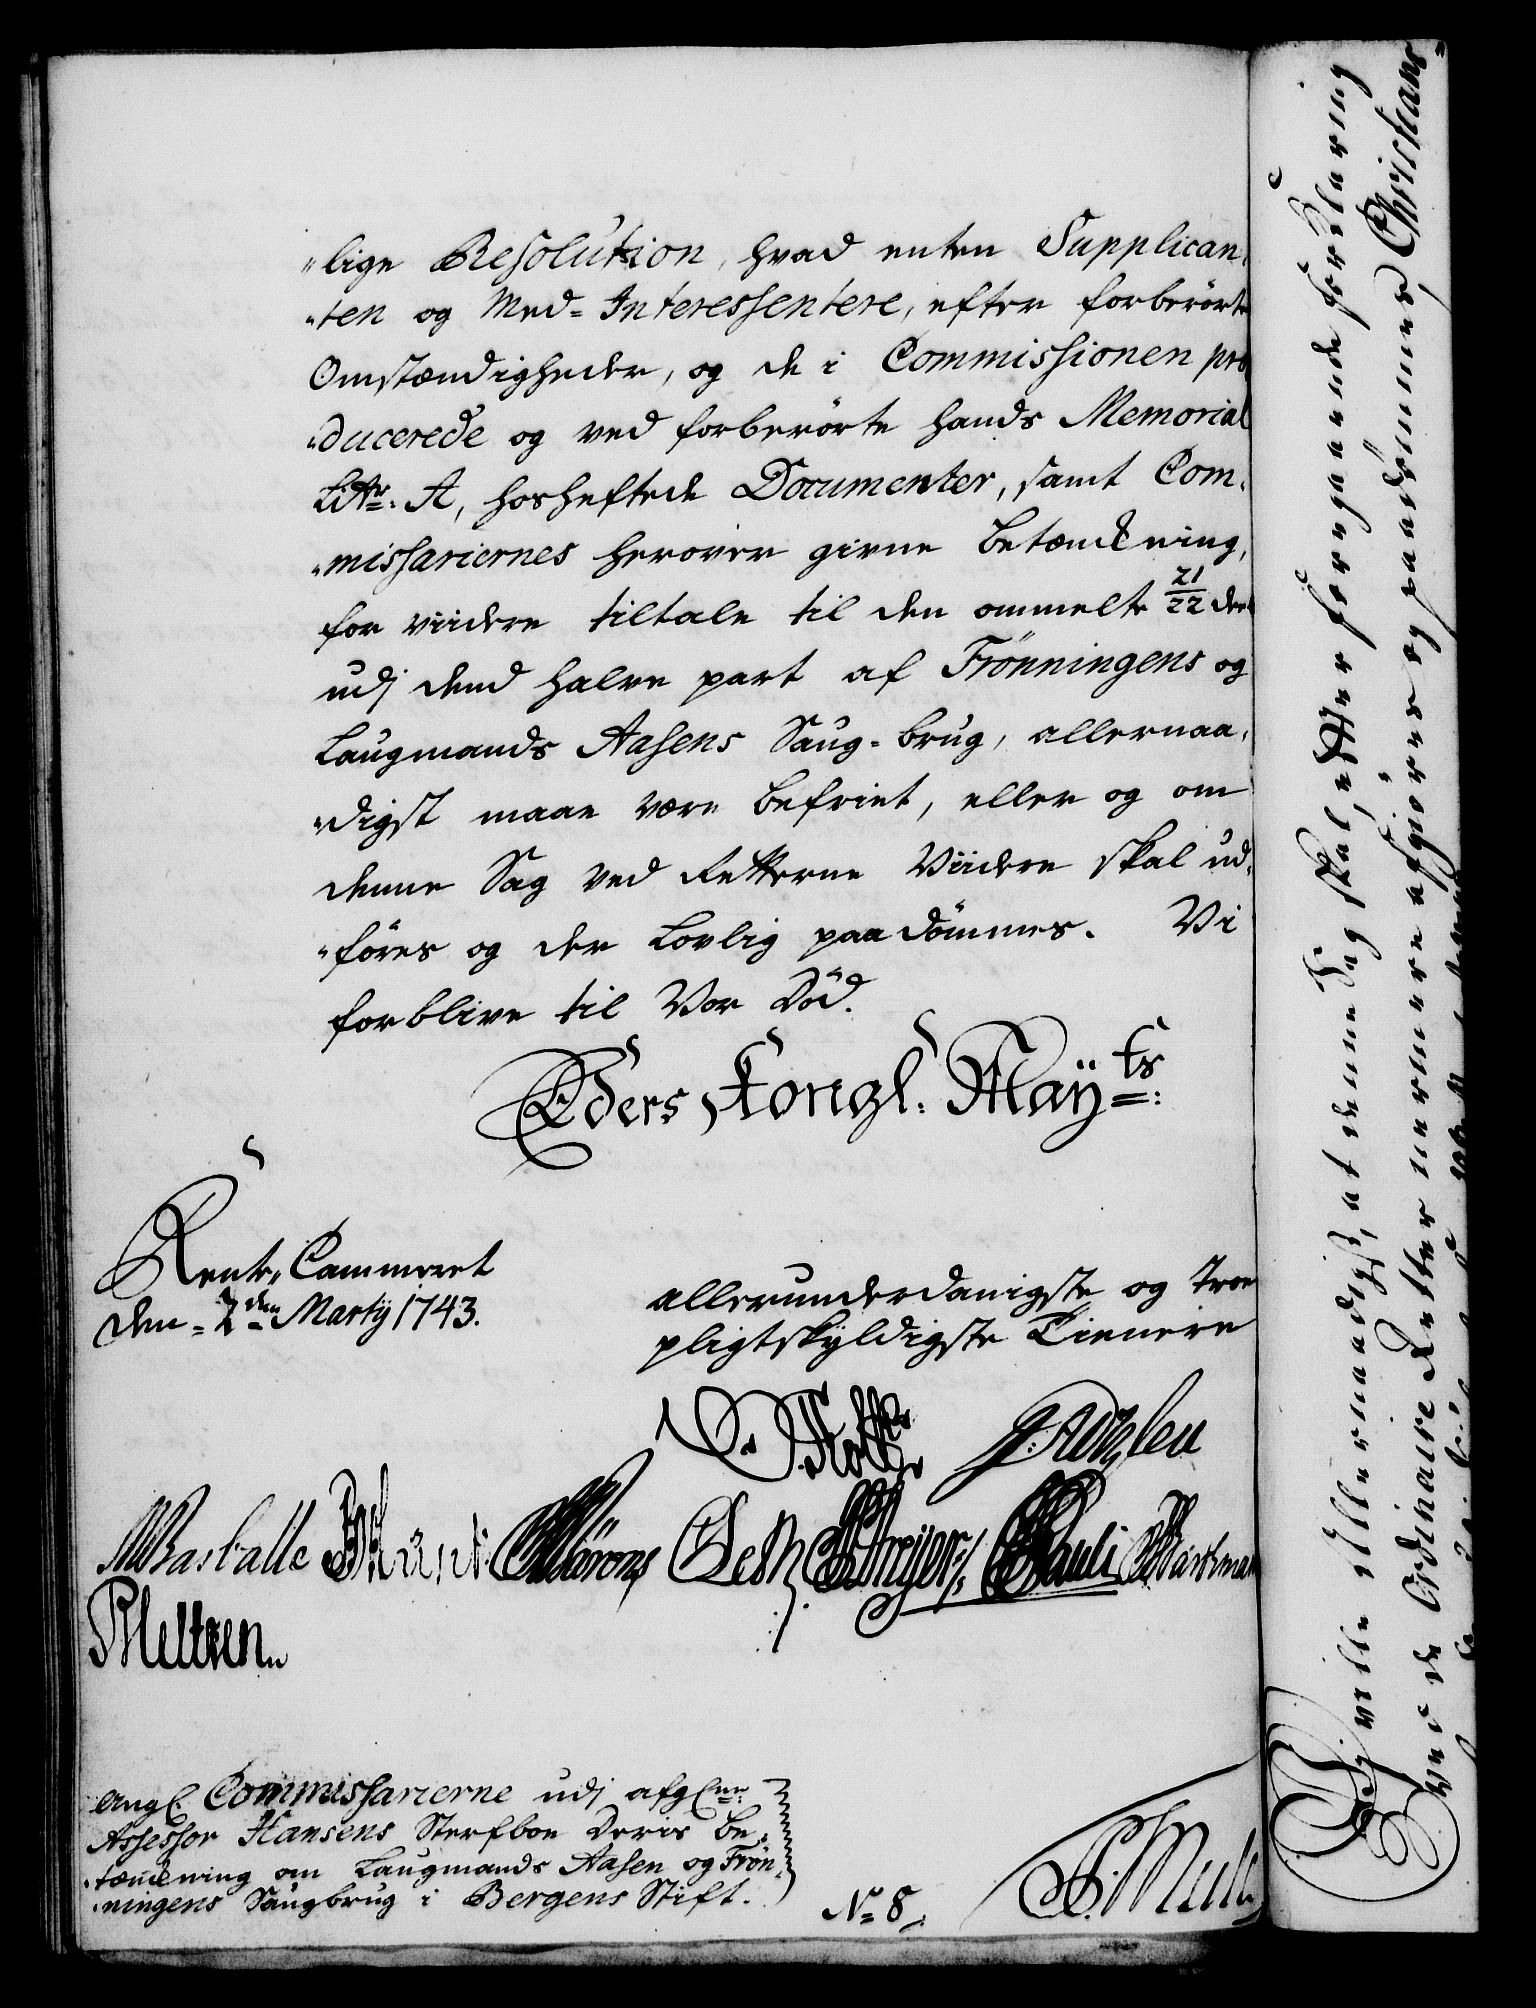 "lige Resolution, hvad enten Supplican,
"ten og Med=Interessentere, efter forberörte
Omstændigheder, og de i Commissionen pro
"ducerede og ved forberörte hands Memorial
Litr: A, hosheftede Documenter, samt Com,
"missariernes herover givne Betænkning,
for viidere tiltale til den ommelte 21/22 deel
udj dend halve part af Frönningens og
Laugmands Aasens Saug=brug, allernaa,
"digst maae være befriet, eller og om
denne Sag ved Retterne Viidere skal ud,
"föres og der Lovlig paadömmes. Vi
forblive til Vor Död.
Eders Kongl: Mayts:
Rente,,Cammeret
den = 2den Martij 1743.
allerunderdanigste og Troe
pligtskyldigste Tienere
Holst
Rasballe
Pauli
Wartman
Meltzen
Angl: Commissarierne udj afgl:
Assessor Hansens Sterfboe Deris Be,
"tænkning om Laugmands Aasen og Frön,
"ningens Saugbrug i Bergens Stift.
No 8
Vi ville Allernaadigst, at denne Sag skal, efter foregaaende forklaring
ved de Ordinaire Retter nærmere afgiöres og paadömmes, Christians=